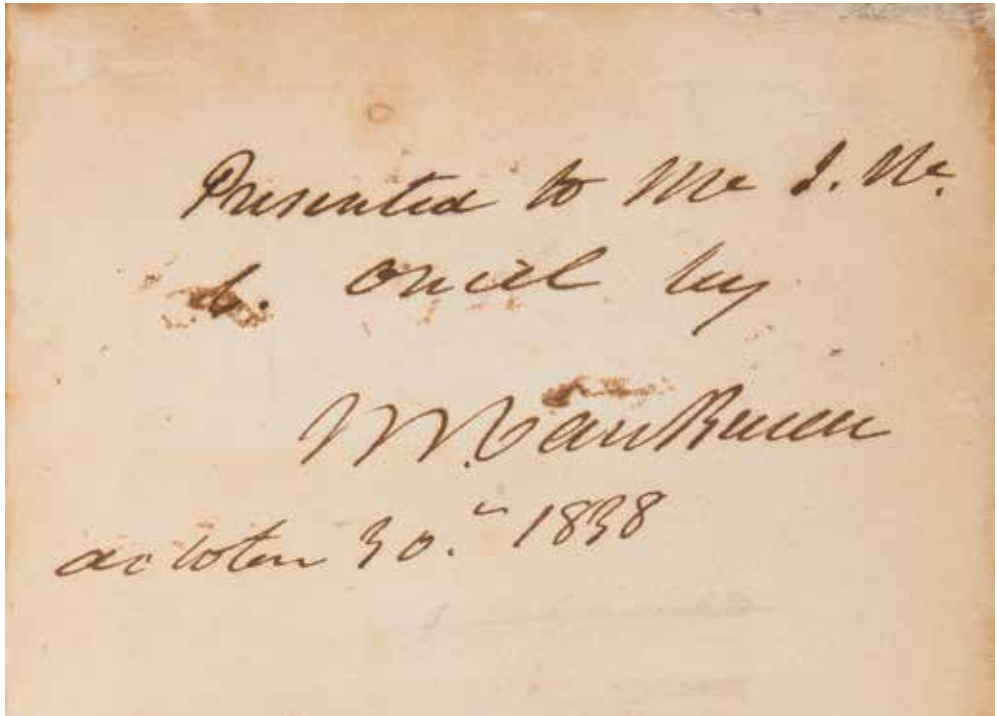 Presented to Mr J. Mc.
C. Oneil by
M. Van Buren
October 30.th 1838